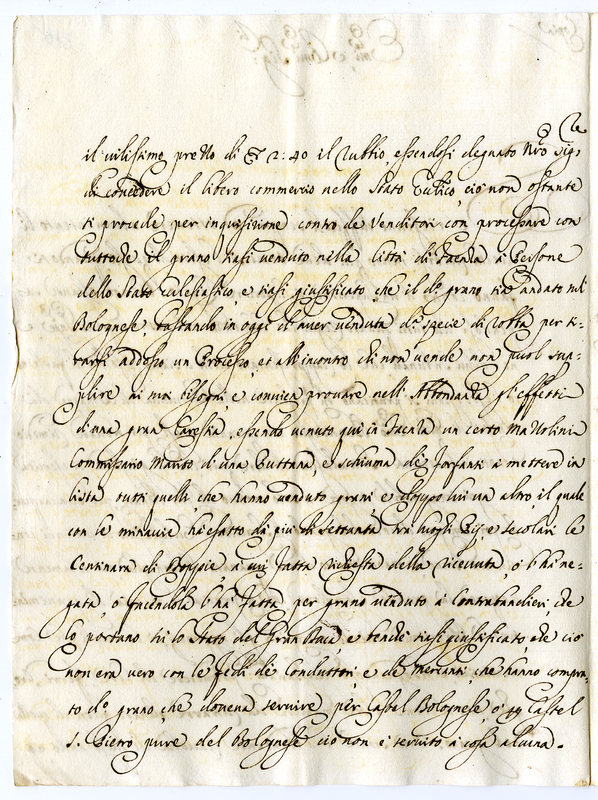 il vilissimo prezzo di 2:40 il Rubbio, essendosi degnato Nro Sigre
di concedere il libero commercio nello Stato Eccl.co, ciò non ostante
si procede per inquisizione contro de Venditori con processare con
tuttoche il grano siasi venduto nella Città di Faenza à Persone
dello Stato Eclesiastico, e siasi giustificato che il do grano sia andato nel
Bolognese, bastando in oggi d'aver venduta da specie di robba per ti-
rarsi addosso un Processo, et all'incontro chi non vende non puol sup-
plire ai suoi bisogni, e conviene provare nell'Abbondanza gl'effetti
di una gran Carestia, essendo venuto qui in Faenza un certo Mazzolini
Commissario Marito di una Puttana, e schiuma de Forfanti à mettere in
lista tutti quelli, che hanno venduto grani, e doppo lui un altro, il quale
con le minaccie hà esatto da più di settanta trà luoghi Pij, e secolari le
Centinara di Doppie, a chi fatta richiesta della ricevuta, ò l'hà ne-
gata, ò facendola l'hà fatta per grano venduto à Contrabandieri che
lo portano trà lo Stato del Gran Duca, e benche siasi giustificato, che ciò
non era vero con le fedi de Conduttori, e de Mercanti, che hanno compra-
to do grano, che doveva servire per Castel Bolognese, ò per Castel
S. Pietro pure del Bolognese ciò non è servito à cosa alcuna.